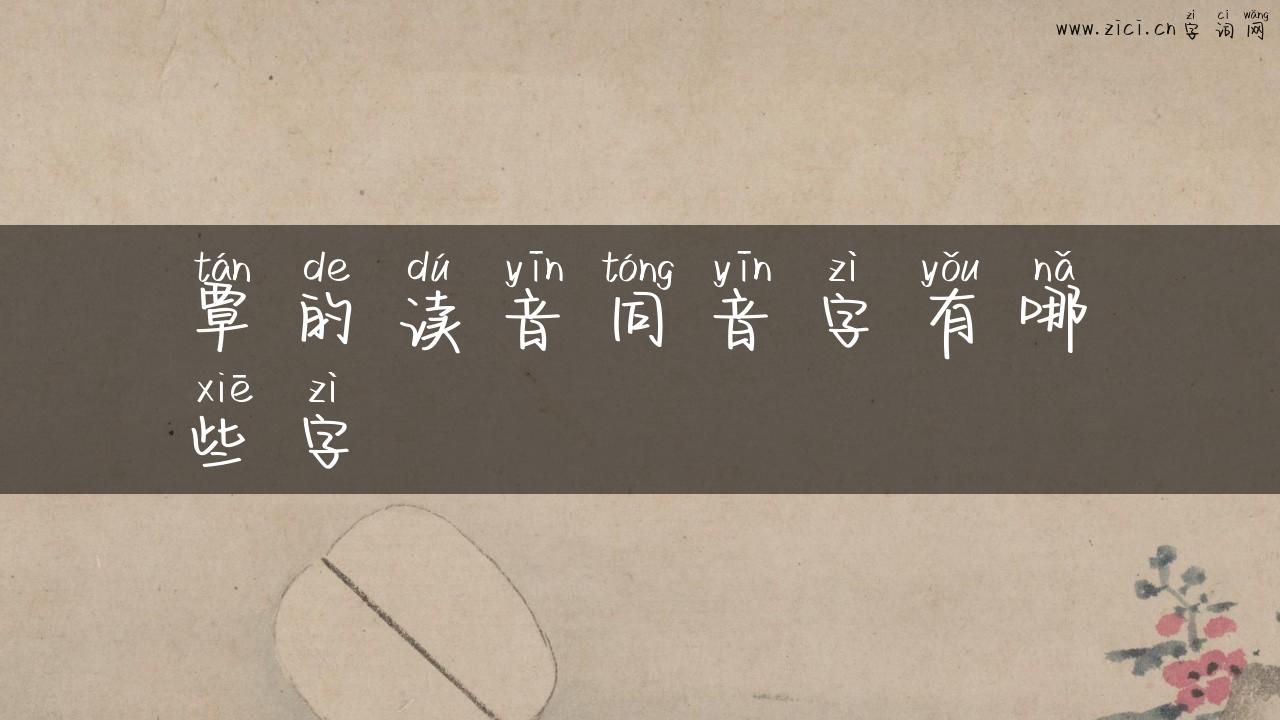 zì cí wǎng
www.zici.cn字词网
tán de dú yīn tóng yīn zì yǒu nǎ
覃的读音同音字有哪
xiē zì
些字